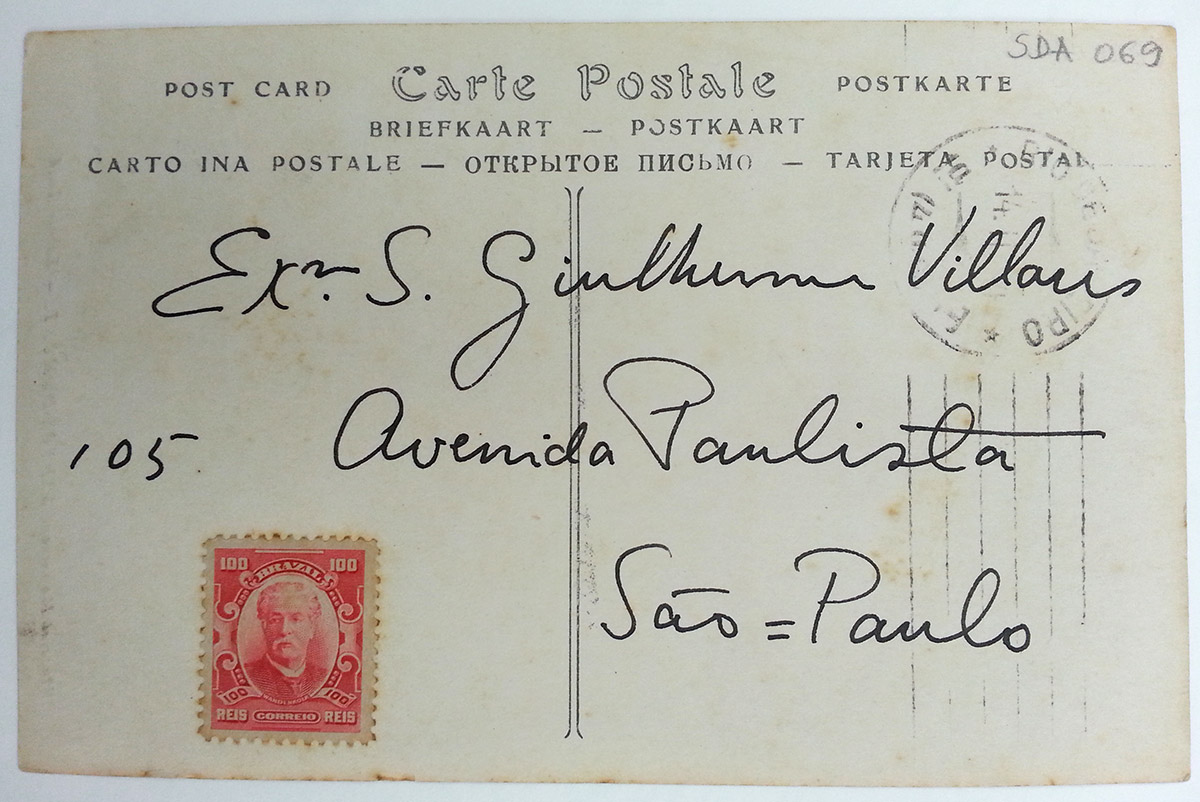 SDA 069
POST CARD Carte Postale POSTKARTE
BRIEFKAART — POSTKAART
CARTO INA POSTALE — ОТКРЫТОЕ ПИСЬМО — TARJETA POSTAL
Exmo. S. Guilherme Villares
105 Avenida Paulista
São = Paulo
100 100
BRAZIL
100 WANDENKOLK 100
REIS CORREIO REIS